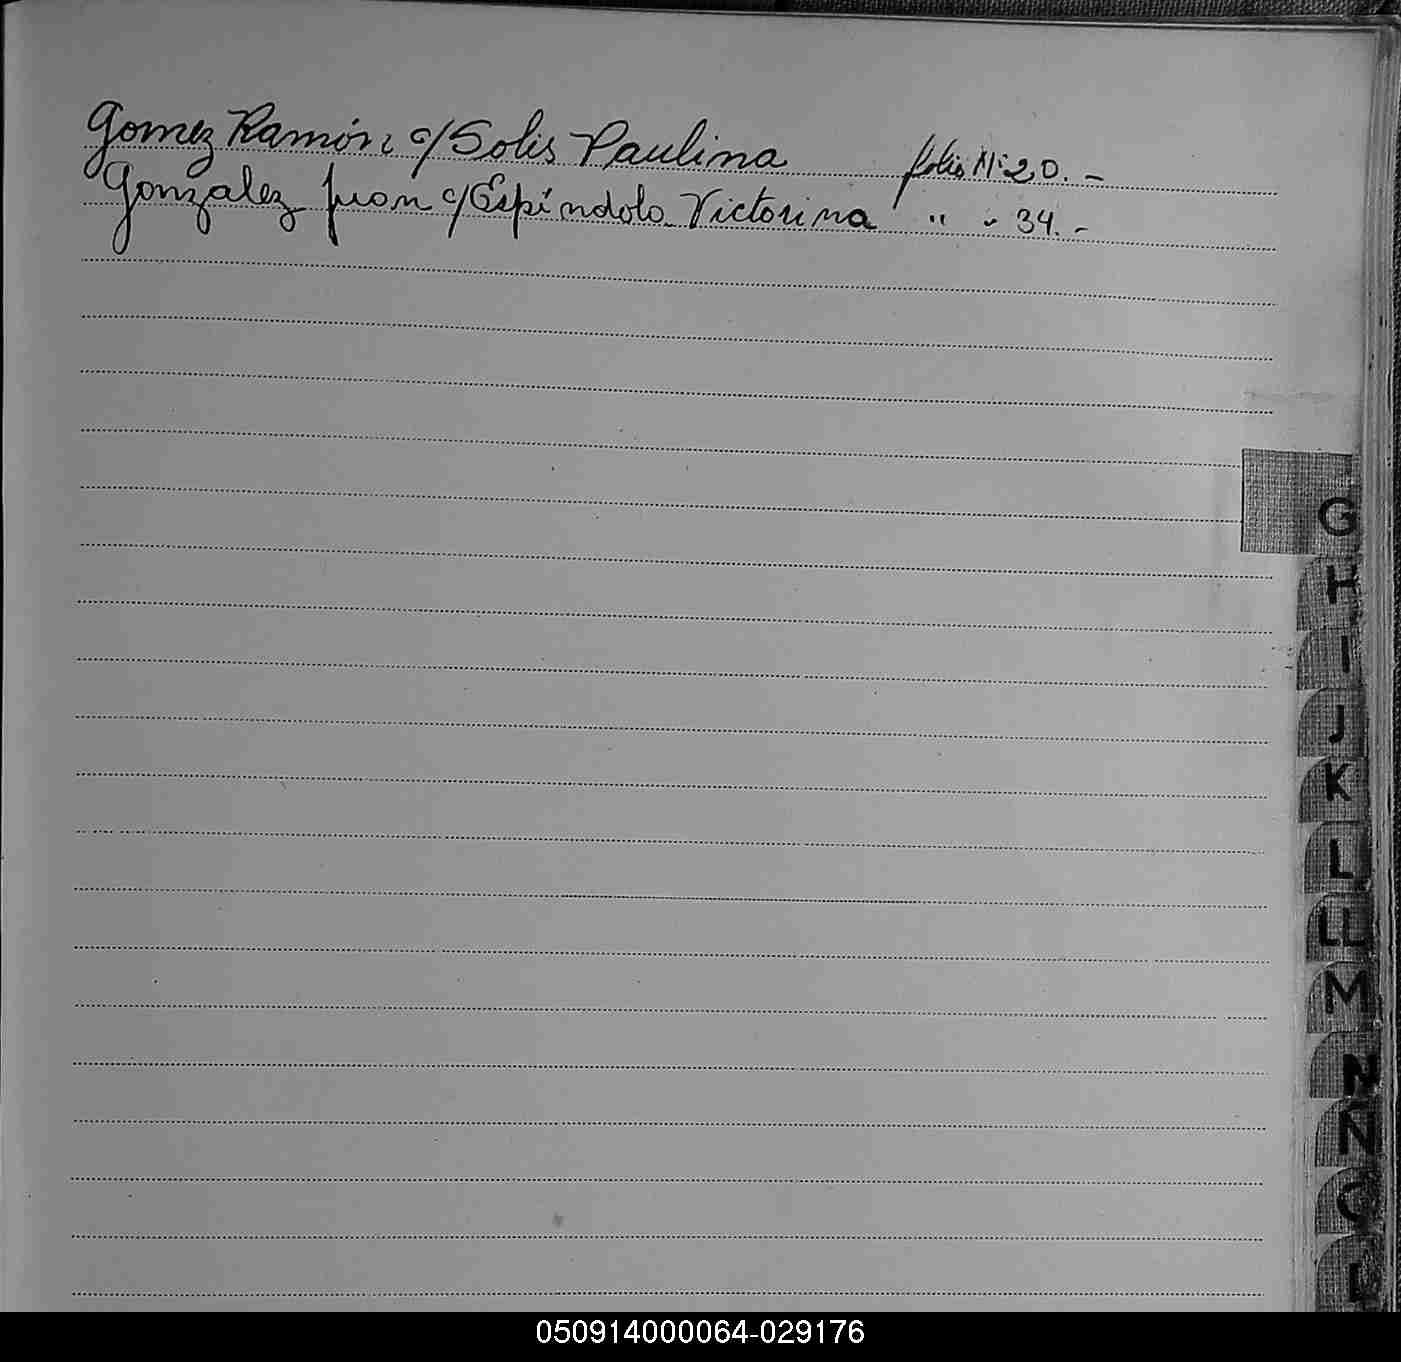 Gomez Ramón c/ Solis Paulina folio Nº 20. -
Gonzalez Juan c/ Espíndola Victorina " " 34. -
G
H
I
J
K
L
LL
M
N
Ñ
O
050914000064-029176